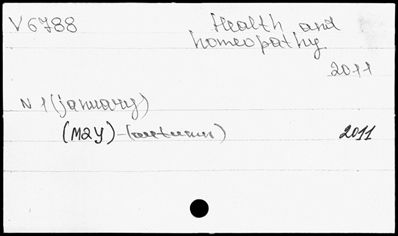 V 6788
Health and
homeopathy
2011
N 1 (january)
(May) - (autumn) 2011